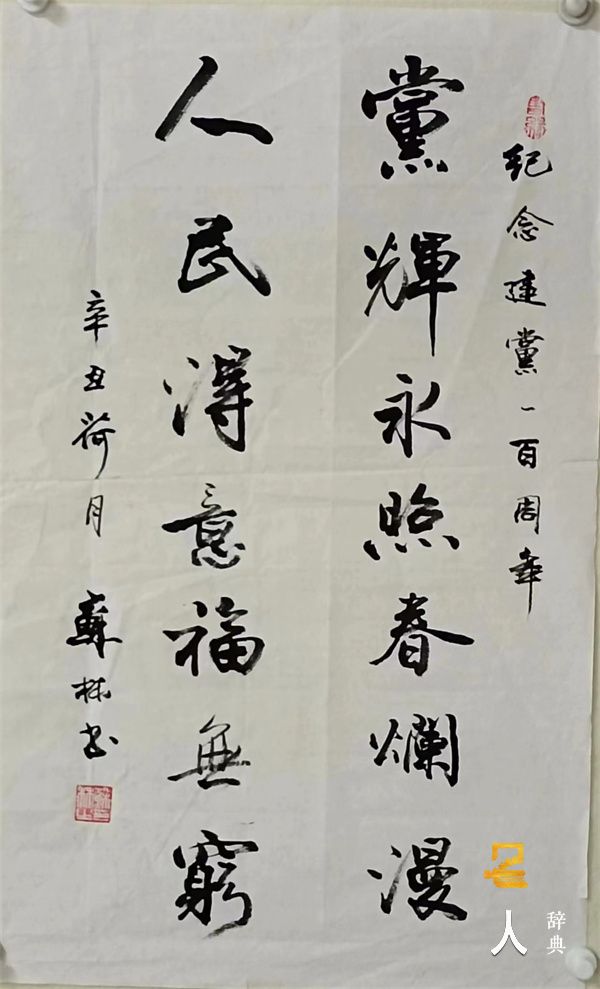 纪念建黨一百周年
黨輝永照春爛漫
人民得意福無窮
辛丑荷月
蘇林书
名人
辞典